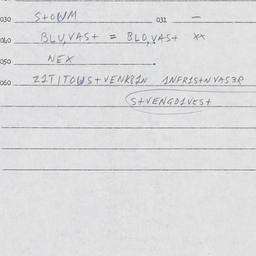 030 S+OWM 031 —
040 BLU,VAS+ = BLO,VAS+ xx
050 NEX .
060 Z1TITOUS+VENK81N 1NFR1S+NVAS3R
S+VENGD1VES+